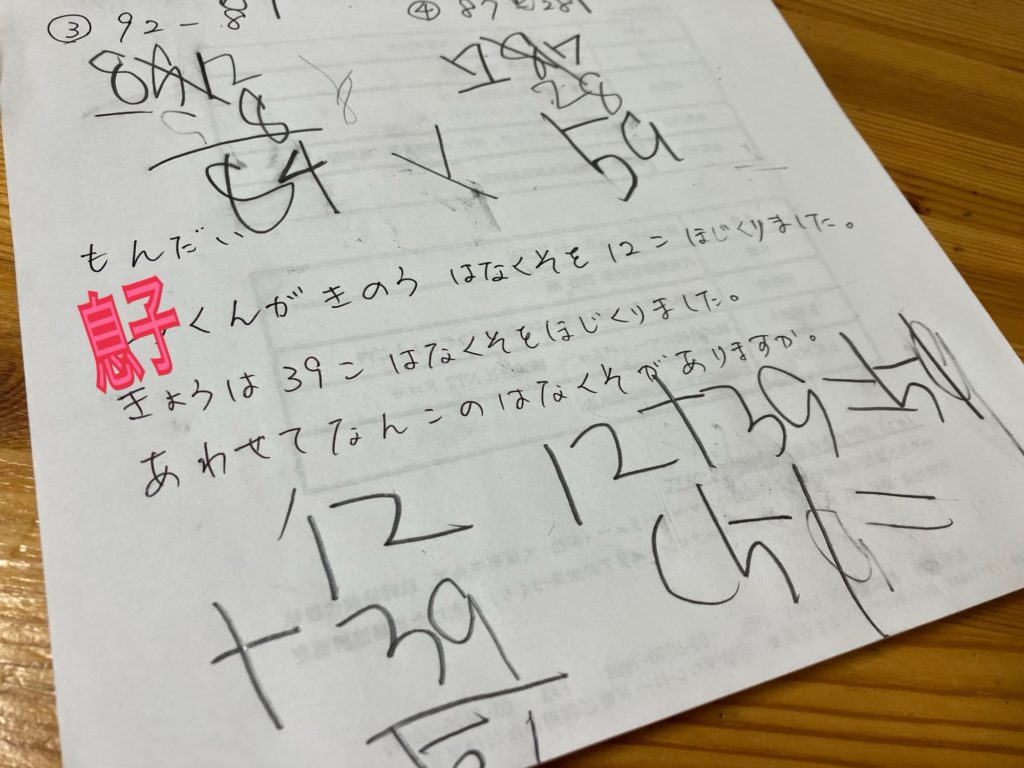 ③ 92 - 8
④ 87
8
12
8
8
84
28
59
もんだい
息子くんがきのうはなくそを12こほじくりました。
きょうは39こはなくそをほじくりました。
あわせてなんこのはなくそがありますか。
12+39=5
12
+39
51